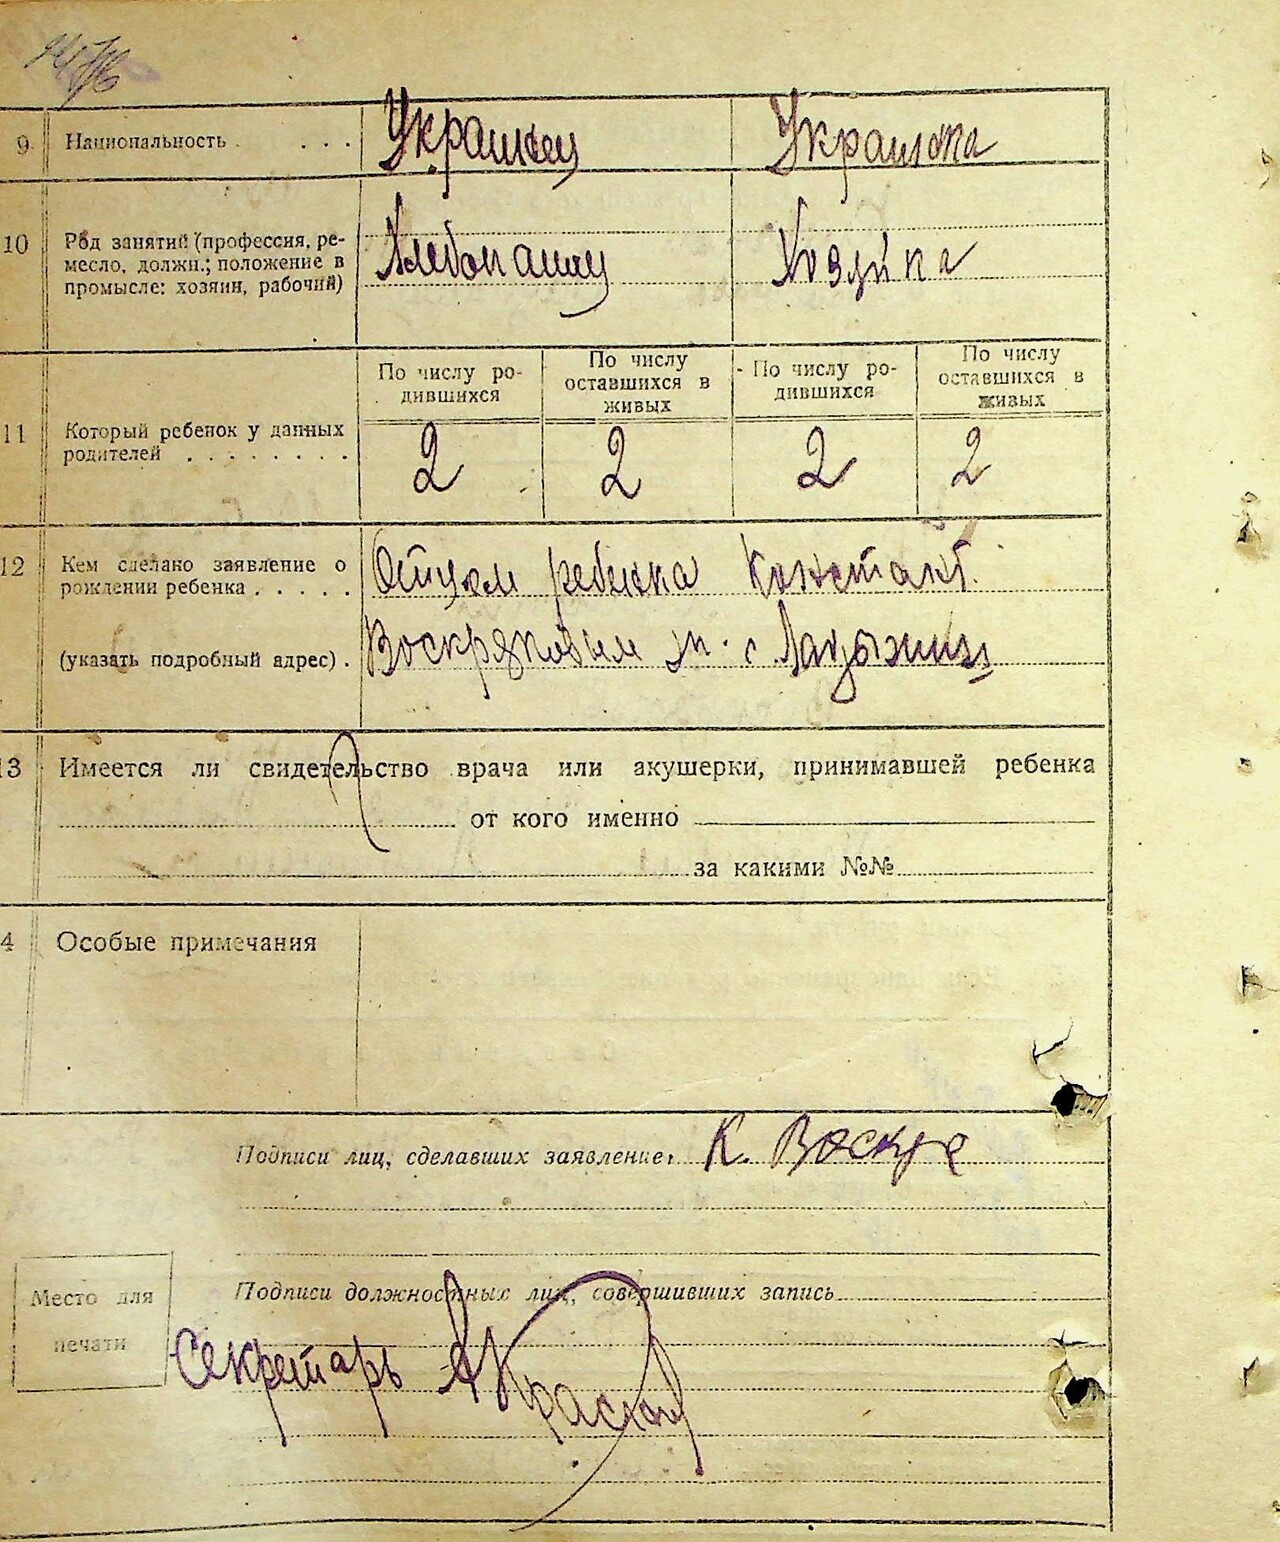 9 Национальность . . . . Украинец Украинка
10 Род занятий (профессия, ре-
месло, должн.; положение в
промысле: хозяин, рабочий)
Хлебопашец Хозяйка
По числу ро-
дившихся
По числу
оставшихся в
живых
По числу ро-
дившихся
По числу
оставшихся в
живых
11 Который ребенок у данных
родителей . . . . . . . .
2 2 2 2
12 Кем сделано заявление о
рождении ребенка . . . . .
(указать подробный адрес) .
Отцом ребенка Констант.
Воскряковым с. Ладыжин
13 Имеется ли свидетельство врача или акушерки, принимавшей ребенка
от кого именно
за какими №№
4 Особые примечания
Подписи лиц, сделавших заявление: К. Воскря
Место для
печати
Подписи должностных лиц, совершивших запись
Секретарь